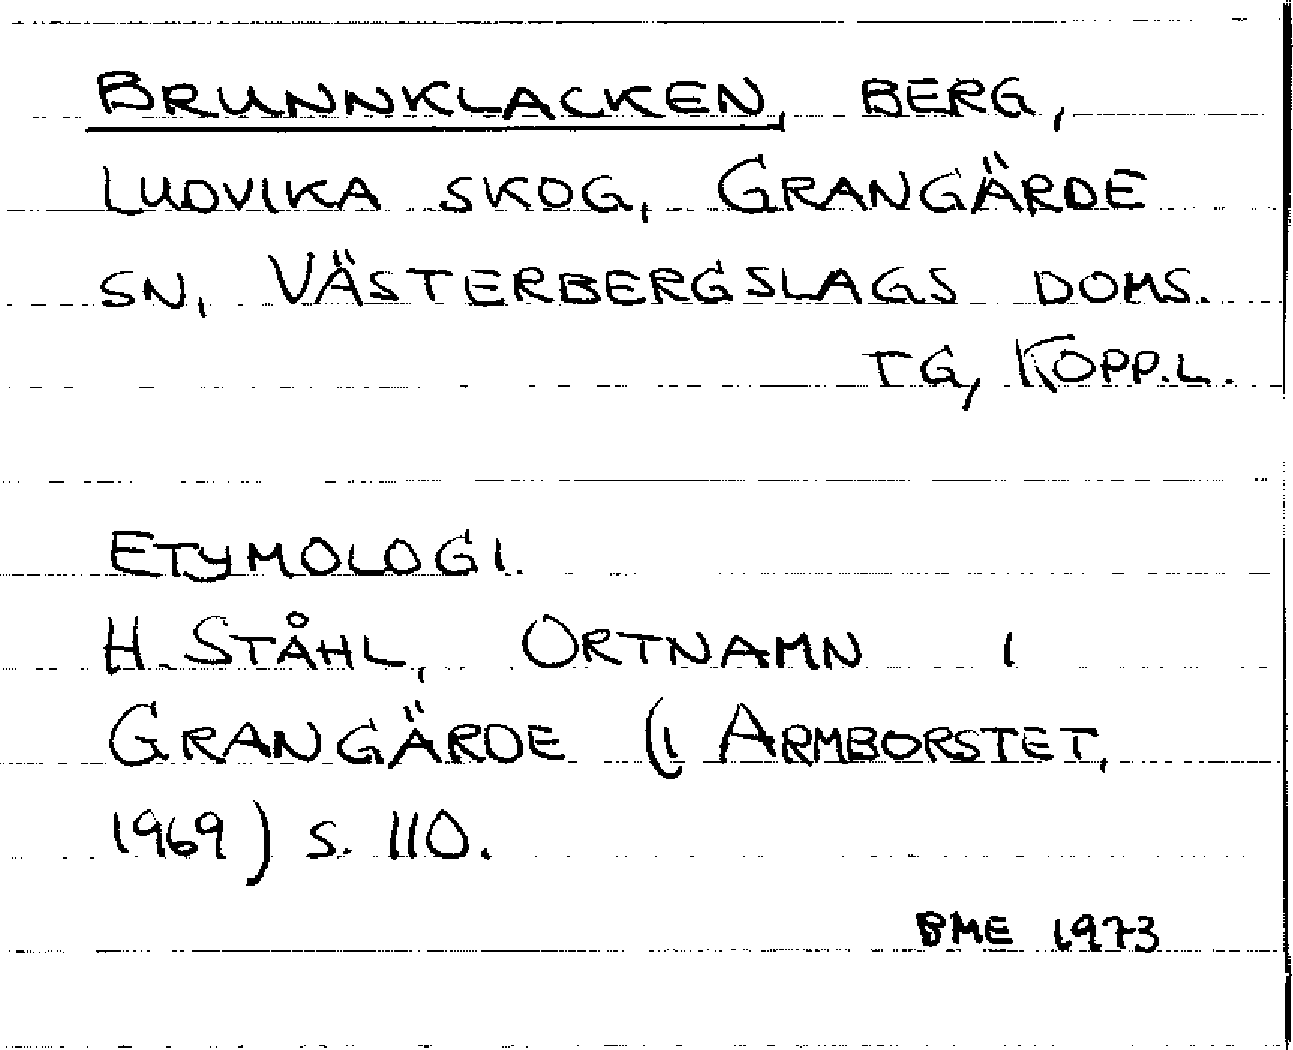 BRUNNKLACKEN, BERG,
LUDVIKA SKOG, GRANGÄRDE
SN, VÄSTERBERGSLAGS DOMS.
TG, KOPP.L.
ETYMOLOGI.
H. STÅHL, ORTNAMN I
GRANGÄRDE (I ARMBORSTET,
1969) S. 110.
BME 1973